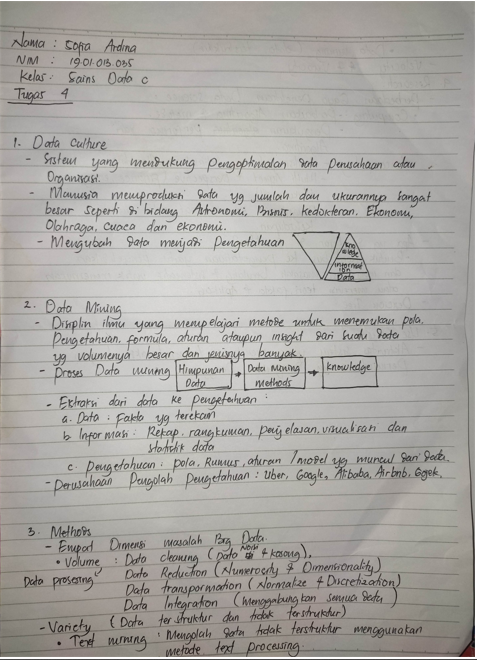 Nama : Sofia Ardina
NIM : 19.01.013.035
Kelas : Sains Data C
Tugas 4
1. Data Culture
- Sistem yang mendukung pengoptimalan data perusahaan atau
Organisasi.
- Manusia memproduksi data yg jumlah dan ukurannya sangat
besar seperti di bidang Astronomi, Bisnis, kedokteran. Ekonomi,
Olahraga, cuaca dan ekonomi.
- Mengubah data menjadi Pengetahuan
Kno
wledge
Informat
ion
Data
2. Data Mining
- Disiplin ilmu yang mempelajari metode untuk menemukan pola,
Pengetahuan, formula, aturan ataupun insight dari suatu data
yg volumenya besar dan jenisnya banyak.
- Proses Data mining
Himpunan
Data
Data Mining
methods
knowledge
- Extraksi dari data ke pengetahuan :
a. Data : Fakta yg terekam
b. Informasi : Rekap, rangkuman, penjelasan, visualisasi dan
statistik data
c. Pengetahuan : pola, Rumus, aturan / model yg muncul dari data.
- perusahaan Pengolah Pengetahuan : Uber, Google, Alibaba, Airbnb, Gojek.
3. Methods
- Empat Dimensi masalah Big Data.
• Volume : Data cleaning (Data Noisi & kosong),
Data prosesing Data Reduction (Numerosity & Dimensionality)
Data transpormation (Normalize & Discretization)
Data Integration (menggabungkan semua data)
- Variety (Data terstruktur dan tidak terstruktur)
• Text mining : Mengolah data tidak terstruktur menggunakan
metode text processing.